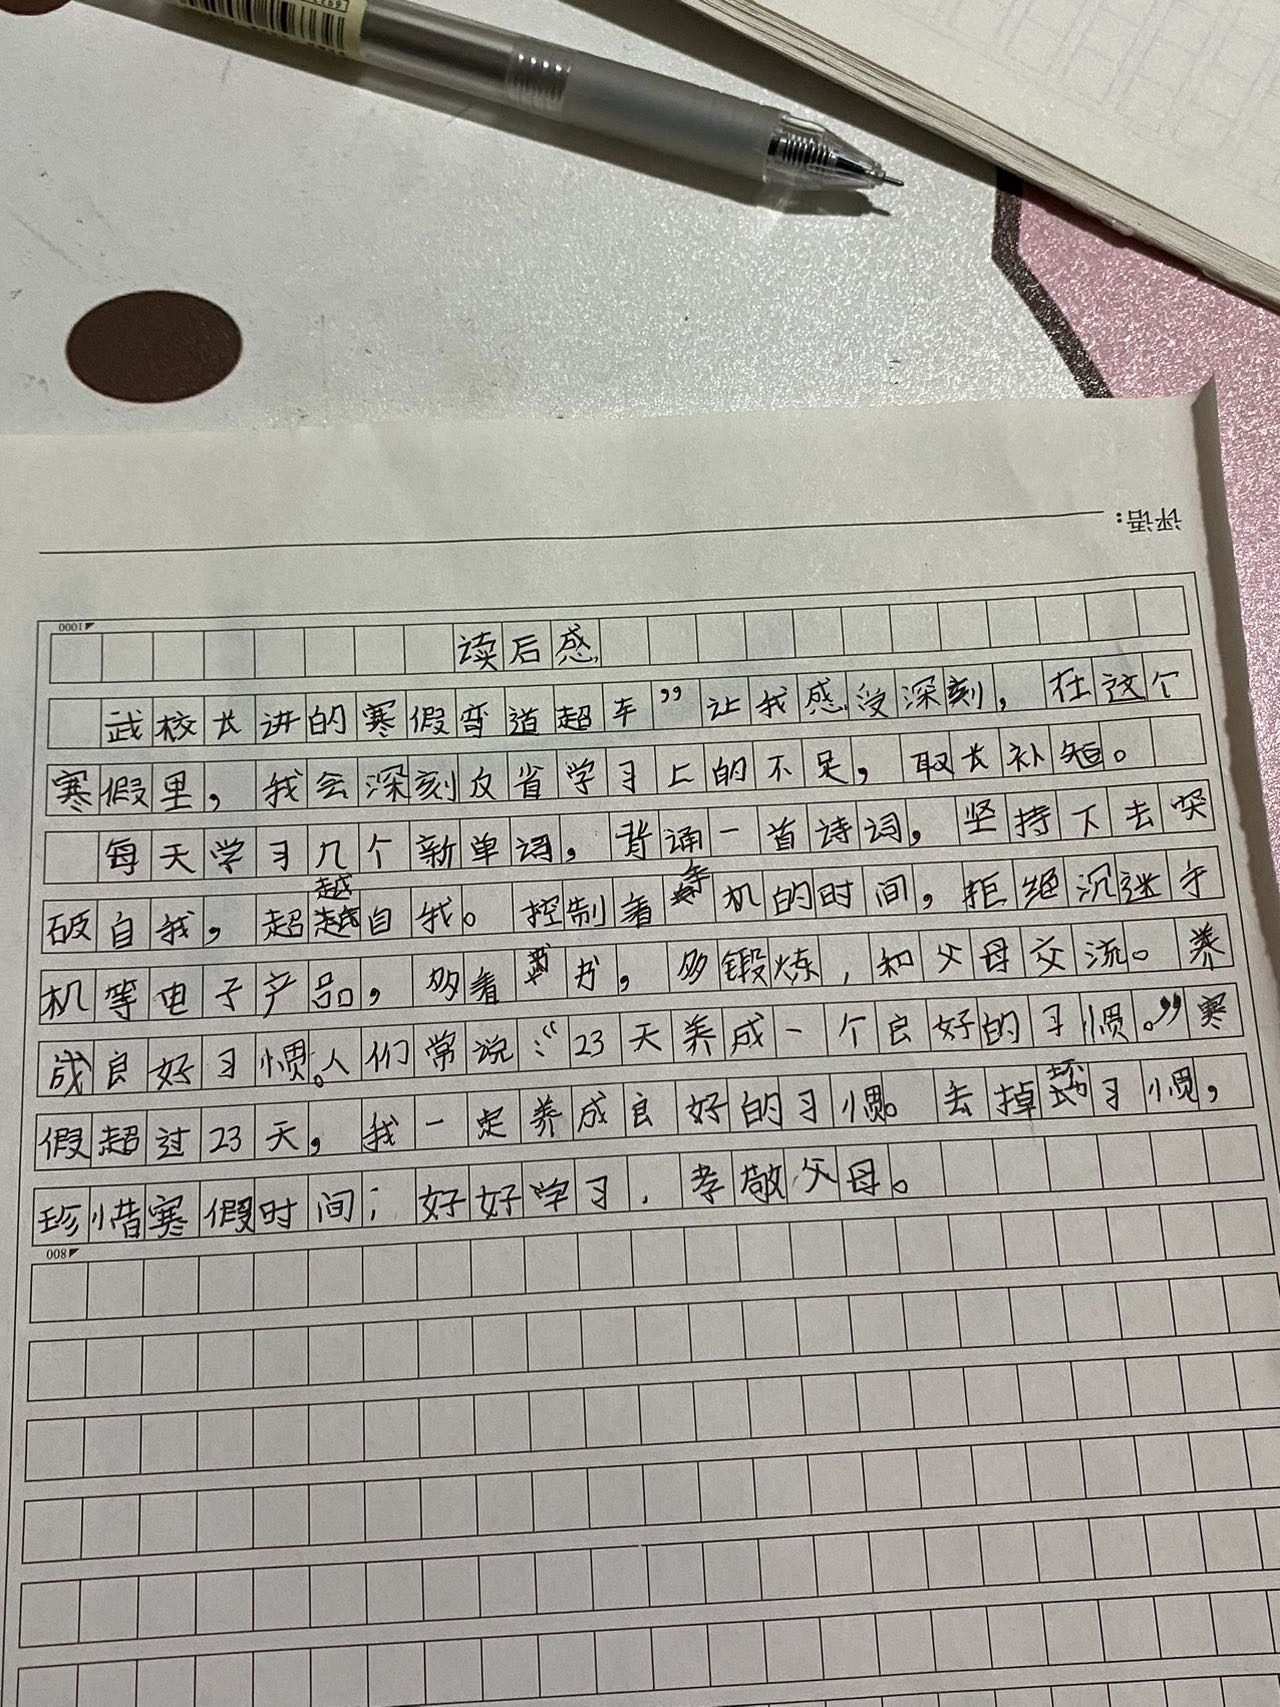 评语：
1000
读后感
武校长讲的寒假弯道超车”让我感受深刻，在这个
寒假里，我会深刻反省学习上的不足，取长补短。
每天学习几个新单词，背诵一首诗词，坚持下去突
破自我，超越自我。控制着手机的时间，拒绝沉迷手
机等电子产品，多看书，多锻炼，和父母交流。养
成良好习惯。人们常说：“23天养成一个良好的习惯。”寒
假超过23天，我一定养成良好的习惯。去掉坏习惯，
珍惜寒假时间；好好学习，孝敬父母。
800